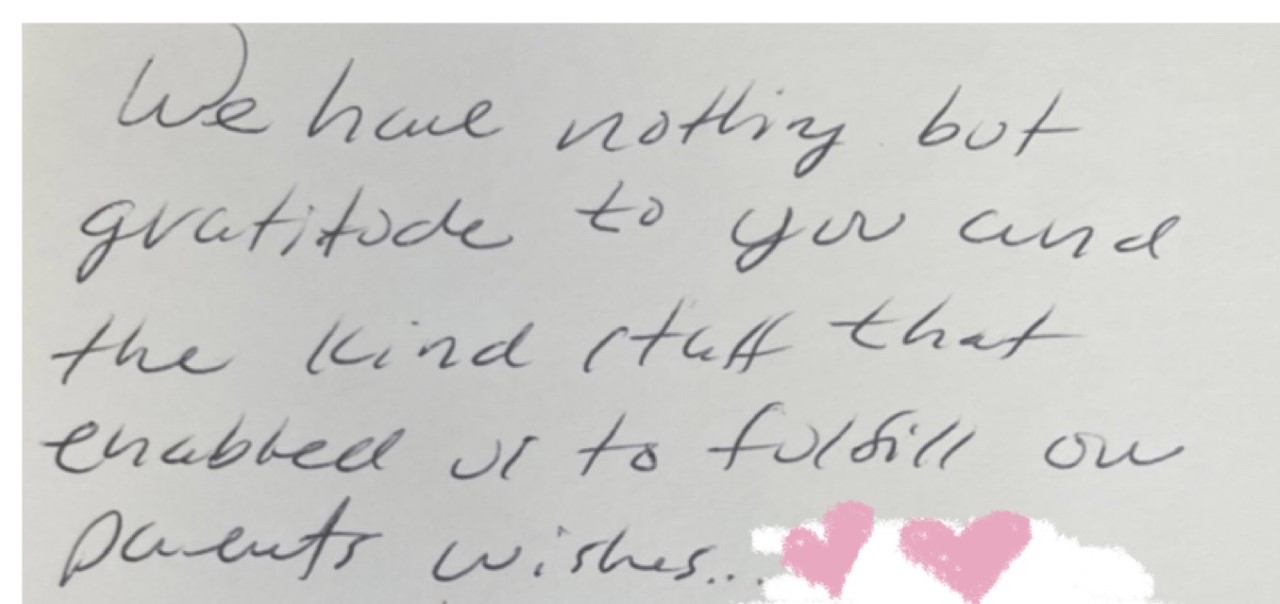 We have nothing but
gratitude to you and
the kind staff that
enabled us to fulfill our
parents wishes...